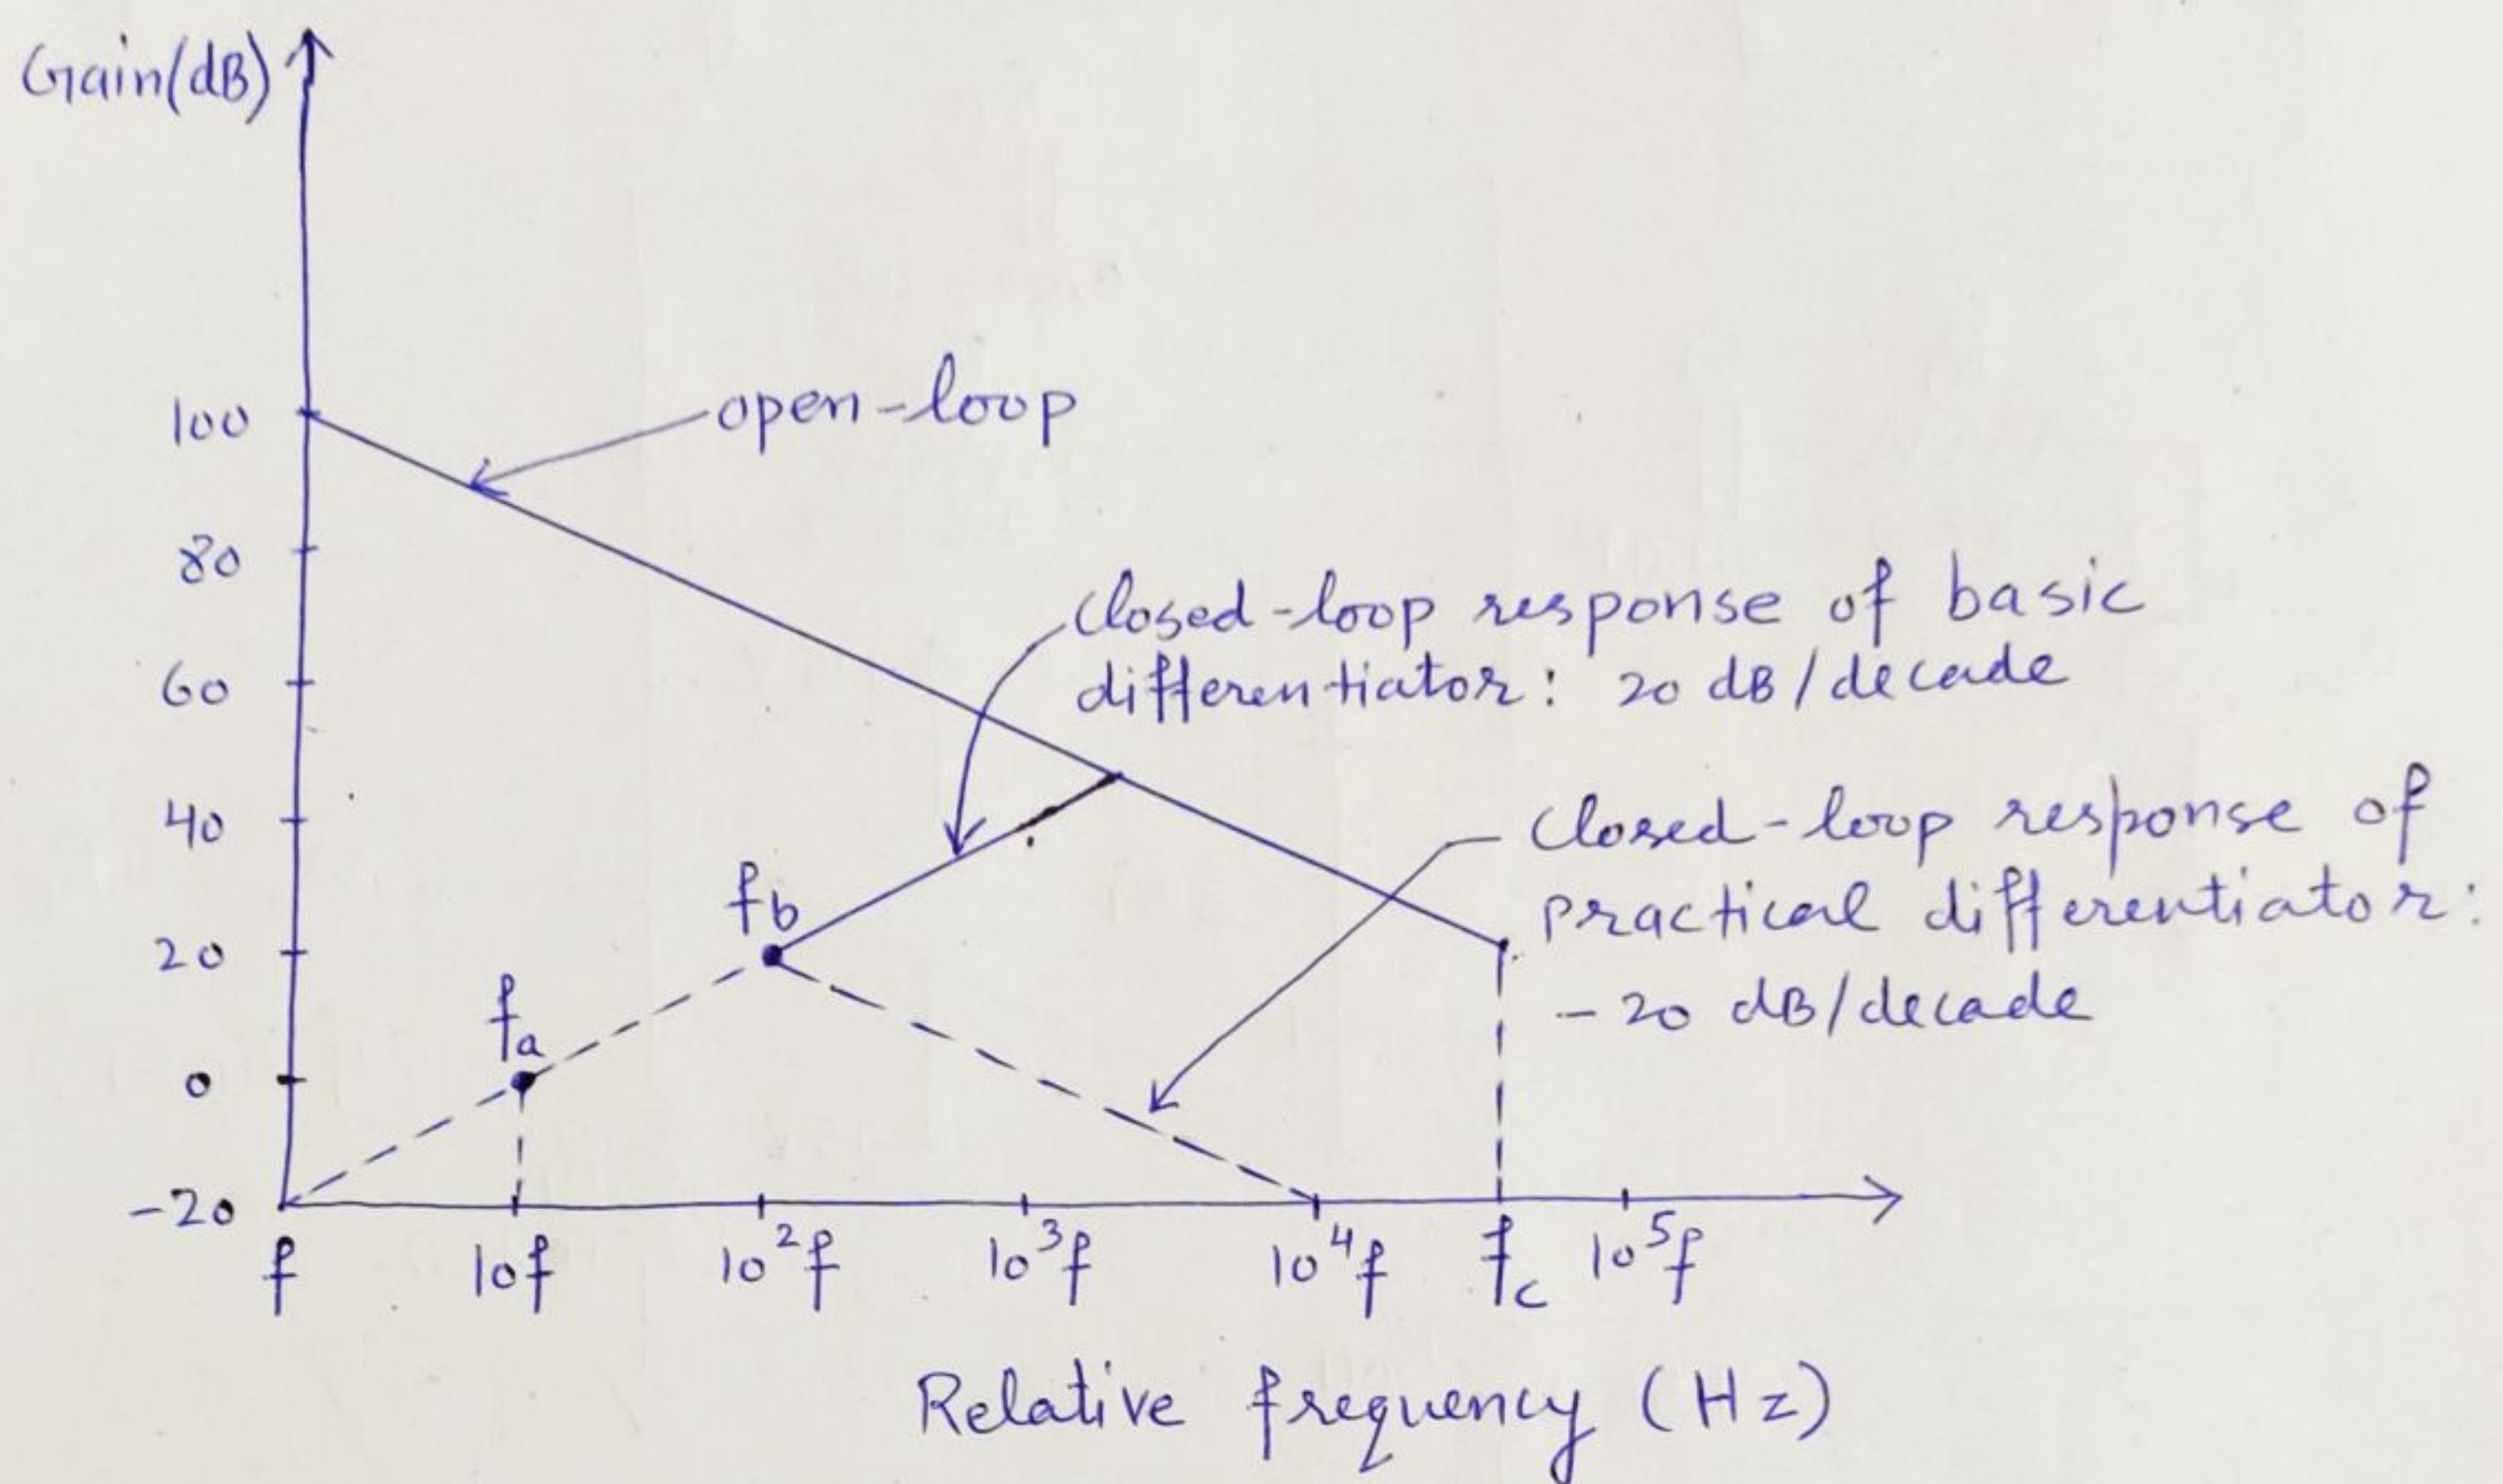 Gain(dB)
100
open-loop
80
Closed-loop response of basic
differentiator: 20 dB/decade
60
40
Closed-loop response of
practical differentiator:
- 20 dB/decade
fb
20
fa
0
-20
f
10f
10²f
10³f
10⁴f
fc
10⁵f
Relative frequency (Hz)